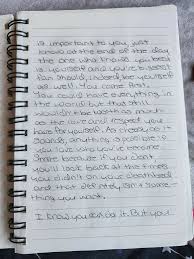 is important to you, just
know at the end of the day
the one who knows you best
is yourself and you're a best
fan should, indeed, be yourself
as well. You come first.
You could have everything in
the world but that still
wouldn't be worth as much
as the love and respect you
have for yourself. As cheesy as it
sounds, anything is possible if
you love who you've become.
Shine because if you don't
you'll look back at the times
you didn't on your deathbed
and that definitely isn't some-
thing you want.
I know you can do it. But you